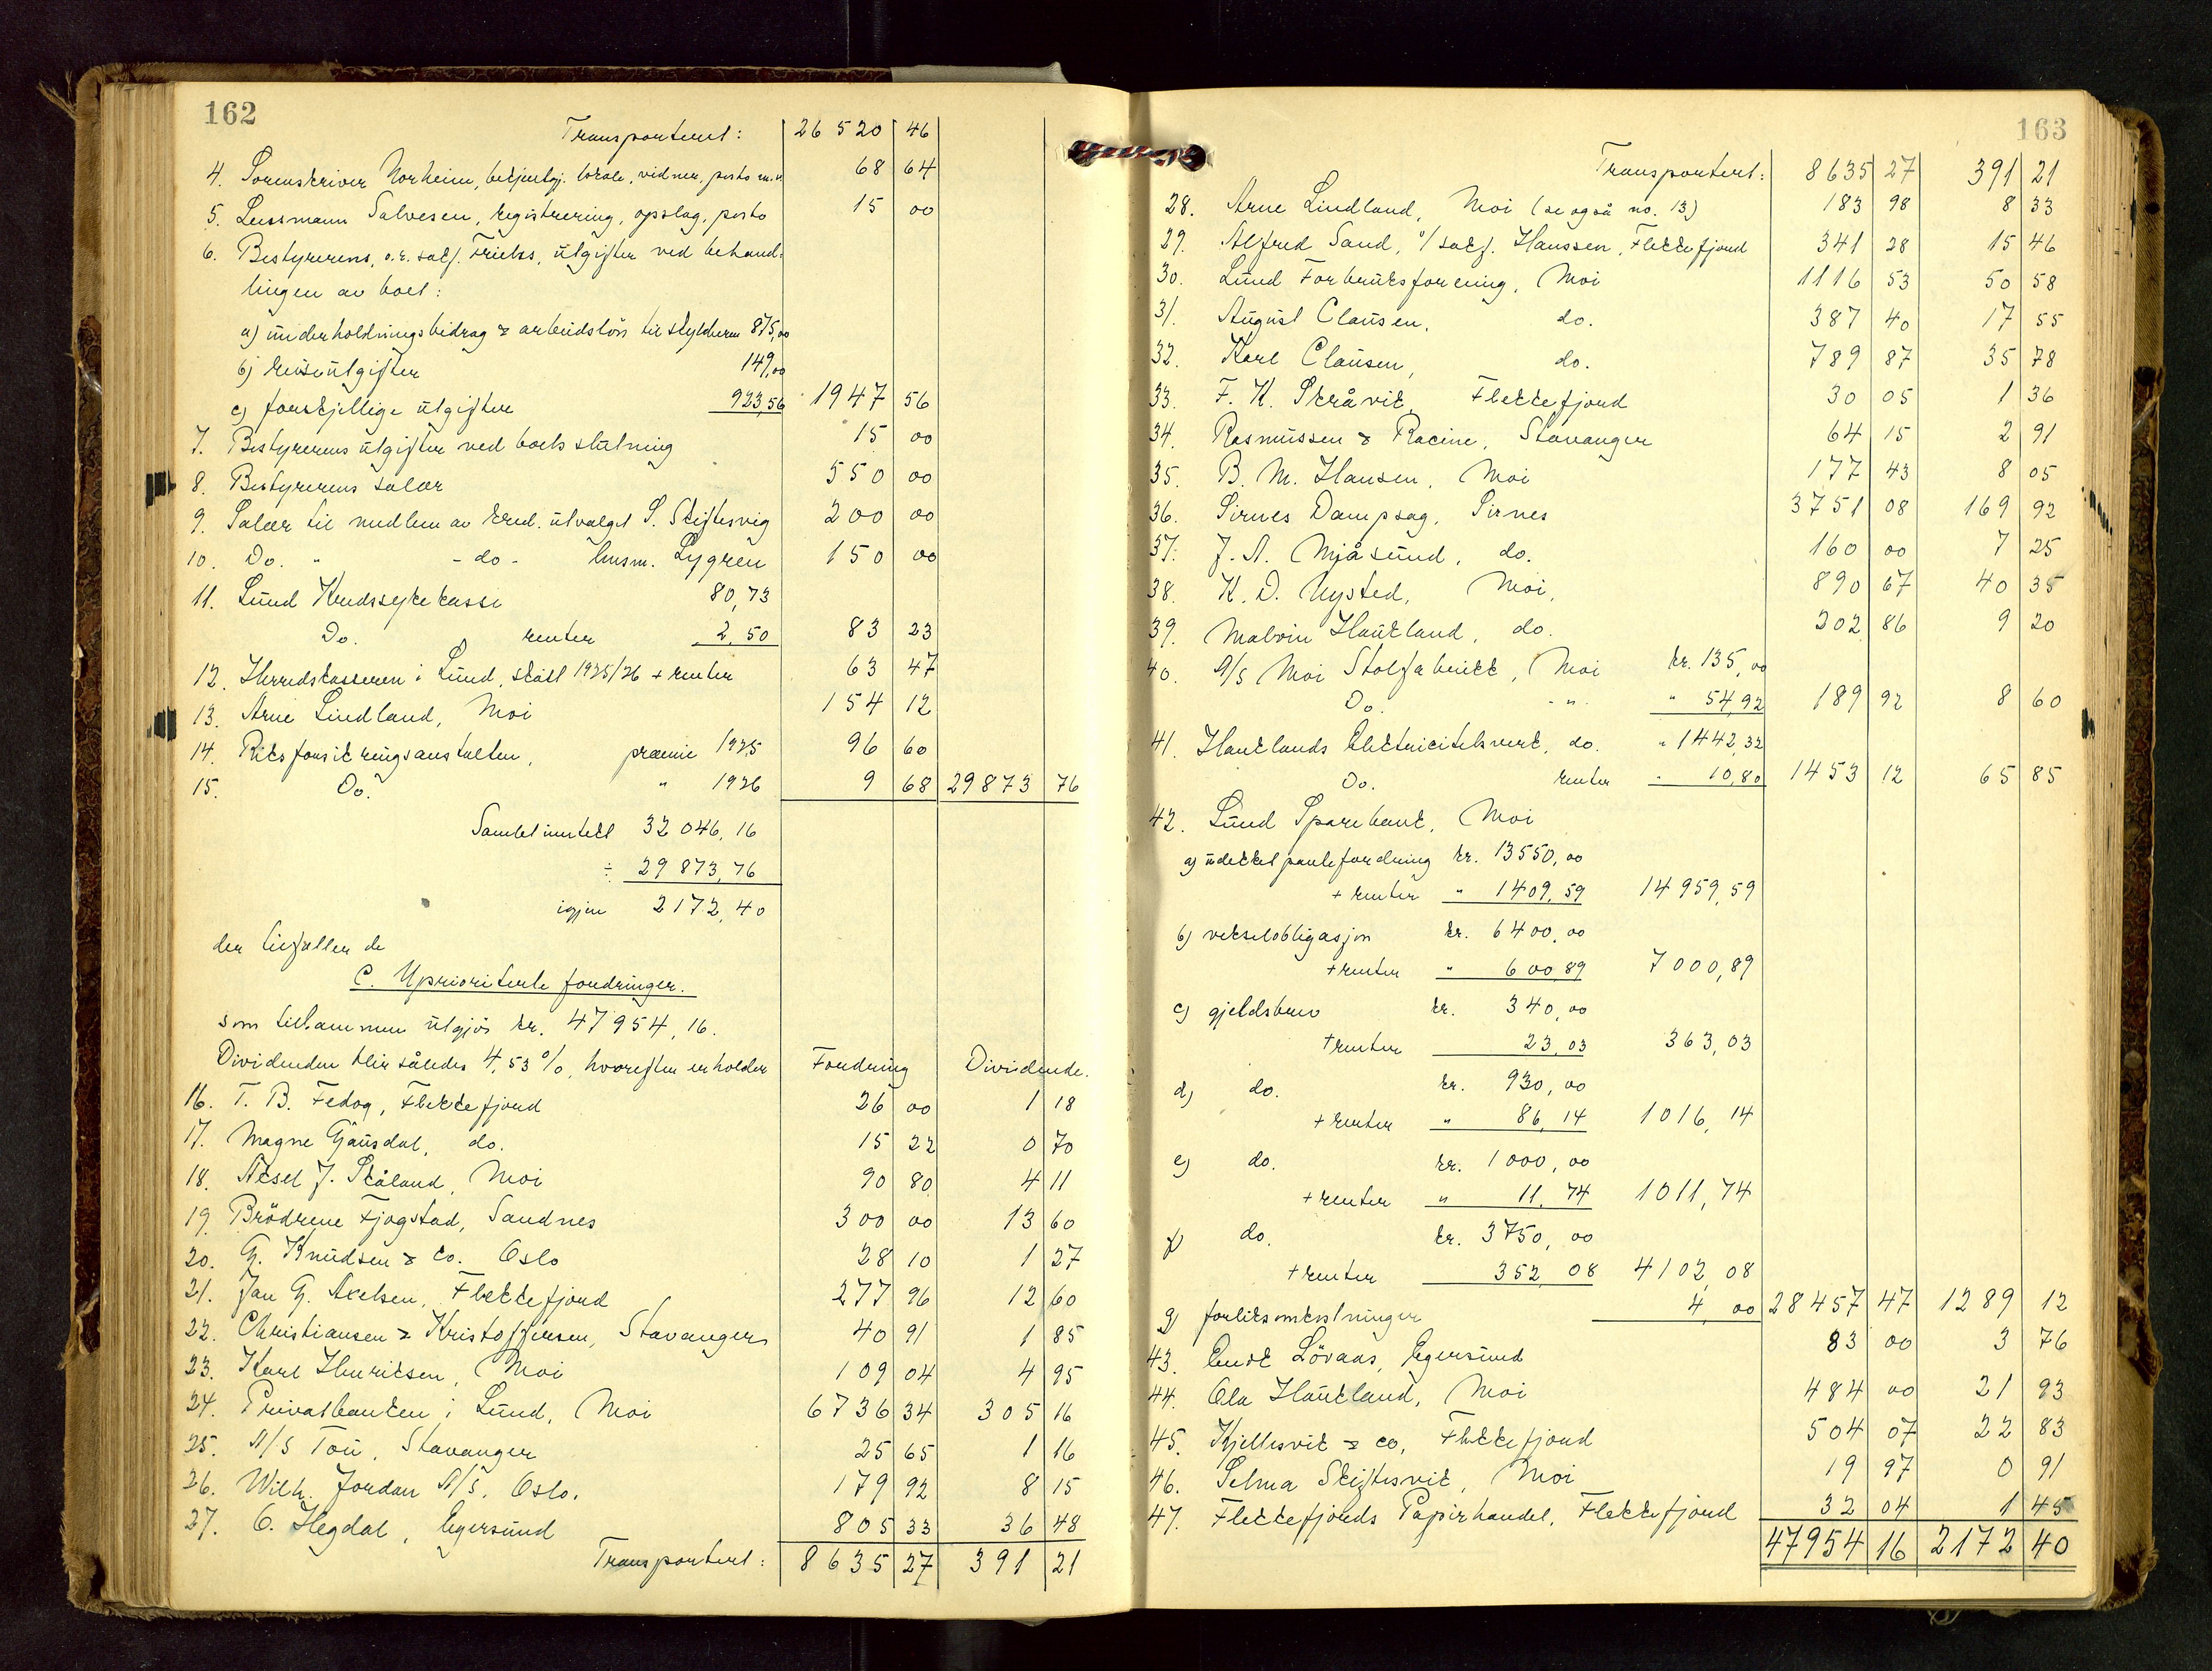 162
Transportert: 26520 46
4. Sorenskriver Norheim, betjentgj. lokale, vidner, porto m.v. 68 64
5. Lensmann Salvesen, registrering, opslag, porto 15 00
6. Bestyrerens, o.r. sakf. Friebs, utgifter ved behand-
lingen av boet:
a) underholdningsbidrag & arbeidslön til skyldneren 875,00
b) reiseutgifter 149,00
c) forskjellige utgifter 923,56 1947 56
7. Bestyrerens utgifter ved boets slutning 15 00
8. Bestyrerens salær 550 00
9. Salær til medlem av kred.utvalget S. Skiftesvig 200 00
10. Do. " - do - lensm. Lygren 150 00
11. Lund Kredssykekasse 80,73
Do. renter 2,50 83 23
12. Herredskasseren i Lund, skatt 1925/26 + renter 63 47
13. Arne Lindland, Moi 154 12
14. Riksforsikringsanstalten, præmie 1925 96 60
15. Do. " 1926 9 68 29873 76
Samlet inntekt 32046,16
÷ 29873,76
igjen 2172,40
der tilfaller de
C. Uprioriterte fordringer.
som tilsammen utgjör kr. 47954,16.
Dividenden blir således 4,53%, hvorefter erholder Fordring Dividende.
16. T. B. Fedog, Flekkefjord 26 00 1 18
17. Magne Gausdal, do. 15 22 0 70
18. Aksel J. Skåland, Moi 90 80 4 11
19. Brödrene Fjogstad, Sandnes 300 00 13 60
20. G. Knudsen & Co. Oslo 28 10 1 27
21. Jan G. Axelsen, Flekkefjord 277 96 12 60
22. Christiansen & Kristoffersen, Stavanger 40 91 1 85
23. Karl Henriksen, Moi 109 04 4 95
24. Privatbanken i Lund, Moi 6736 34 305 16
25. A/S Tou, Stavanger 25 65 1 16
26. Wilh. Jordan A/S. Oslo. 179 92 8 15
27. O. Hegdal, Egersund 805 33 36 48
Transportert: 8635 27 391 21
163
Transportert: 8635 27 391 21
28. Arne Lindland, Moi (se også no. 13) 183 98 8 33
29. Alfred Sand, o/ sakf. Hanssen, Flekkefjord 341 28 15 46
30. Lund Forbruksforening, Moi 1116 53 50 58
31. August Clausen, do. 387 40 17 55
32. Karl Clausen, do. 789 87 35 78
33. F. K. Skråvik, Flekkefjord 30 05 1 36
34. Rasmussen & Racine, Stavanger 64 15 2 91
35. B. M. Hansen, Moi 177 43 8 05
36. Sirnes Dampsag, Sirnes 3751 08 169 92
37. J. A. Mjåsund, do. 160 00 7 25
38. K. D. Nysted, Moi, 890 67 40 35
39. Malvin Haukland, do. 202 86 9 20
40. A/S Moi Stolfabrikk, Moi kr. 135,00
Do. - " - " 54,92 189 92 8 60
41. Hauklands Elektricitetsverk, do. " 1442,32
Do. renter " 10,80 1453 12 65 85
42. Lund Sparebank, Moi
a) udekket pantefordring kr. 13550,00
+ renter " 1409,59 14959,59
b) vekselobligasjon kr. 6400,00
+ renter " 600,89 7000,89
c) gjeldsbrev kr. 340,00
+ renter 23,03 363,03
d) do. kr. 930,00
+ renter " 86,14 1016,14
e) do. kr. 1000,00
+ renter " 11,74 1011,74
f) do. kr. 3750,00
+ renter 352,08 4102,08
g) forliksomkostninger 4,00 28457 47 1289 12
43. Endr. Lövaas, Egersund 83 00 3 76
44. Ola Haukland, Moi 484 00 21 93
45. Kjellesvik & co, Flekkefjord 504 07 22 83
46. Selma Skiftesvik, Moi 19 97 0 91
47. Flekkefjords Papirhandel, Flekkefjord 32 04 1 45
47954 16 2172 40